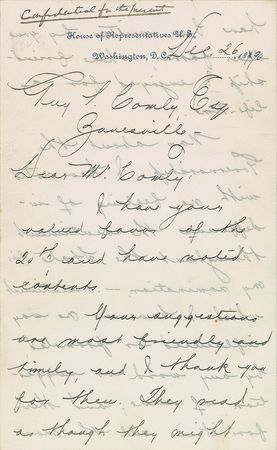 Confidential for the present
House of Representatives U.S.,
Washington, D.C., Dec. 26, 1890
Guy S. Comly, Esq
Zanesville —
O
Dear Mr. Comly:
I have your
valued favor of the
20th and have noted
contents.
Your suggestions
are most friendly and
timely, and I thank you
for them. They read
as though they might